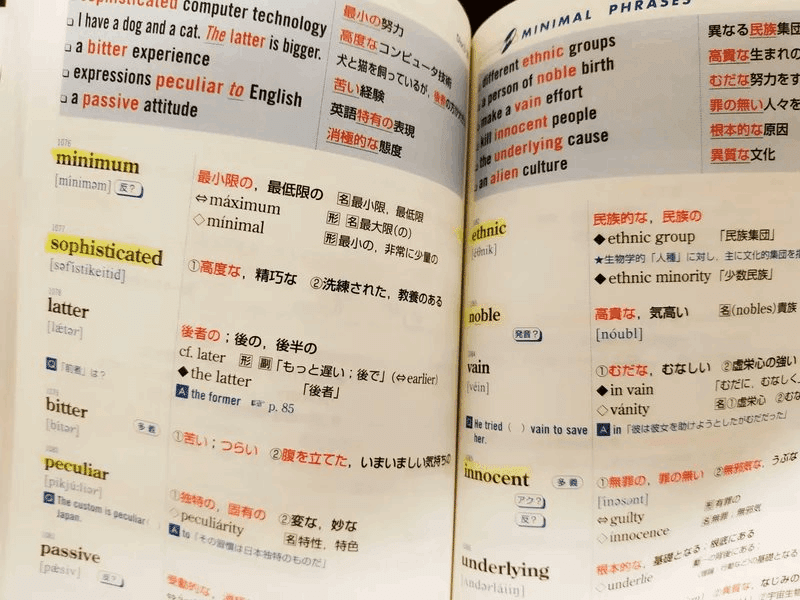 sophisticated computer technology
I have a dog and a cat. The latter is bigger.
a bitter experience
expressions peculiar to English
a passive attitude
最小の努力
高度なコンピュータ技術
犬と猫を飼っているが,後者の方が
苦い経験
英語特有の表現
消極的な態度
1076
minimum
[mínimәm] 反?
最小限の,最低限の 名最小限,最低限
⇔máximum 形 名最大限(の)
◇mínimal 形最小の,非常に少量の
1077
sophisticated
[sәfístikeitid]
①高度な,精巧な ②洗練された,教養のある
1078
latter
[lǽtәr]
Q「前者」は?
後者の;後の,後半の
cf. later 形 副「もっと遅い;後で」(⇔earlier)
◆the latter 「後者」
A the former ☞ p. 85
1079
bitter
[bítәr] 多義
①苦い;つらい ②腹を立てた,いまいましい気持ちの
1080
peculiar
[pikjúːliәr]
Q The custom is peculiar ( )
Japan.
①独特の,固有の ②変な,妙な
◇peculiárity 名特性,特色
A to「その習慣は日本独特のものだ」
1081
passive
[pǽsiv] 反?
受動的な,
MINIMAL PHRASES
different ethnic groups
a person of noble birth
make a vain effort
kill innocent people
the underlying cause
an alien culture
異なる民族集団
高貴な生まれの
むだな努力をす
罪の無い人々を
根本的な原因
異質な文化
ethnic
[éθnik]
民族的な,民族の
◆ethnic group 「民族集団」
★生物学的「人種」に対し,主に文化的集団を指
◆ethnic minority「少数民族」
noble
発音?
高貴な,気高い 名(nobles)貴族
[nóubl]
1084
vain
[véin]
Q He tried ( ) vain to save
her.
①むだな,むなしい ②虚栄心の強い
◆in vain 「むだに,むなしく」
◇vánity 名①虚栄心 ②むな
A in「彼は彼女を助けようとしたがむだだった」
1085
innocent 多義
アク?
反?
①無罪の,罪の無い ②無邪気な,うぶな
[ínәsәnt]
⇔guilty 形有罪の
◇innocence 名無罪;無邪気
1086
underlying
[ʌ̀ndәrláiiŋ]
根本的な,基礎となる,根底にある
◇underlie